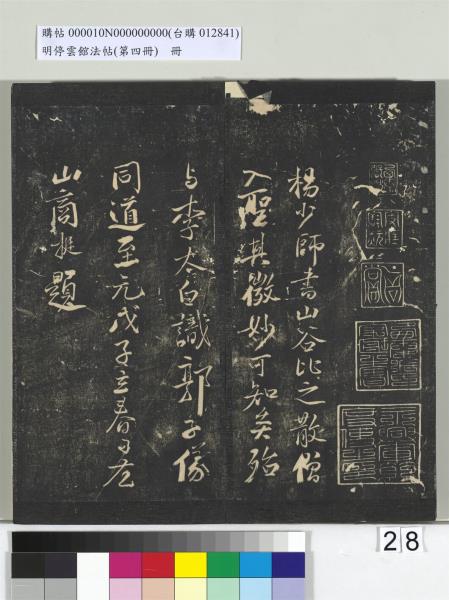 購帖 000010N000000000(台購 012841)
明停雲館法帖(第四冊) 冊
楊少師書山谷比之散僧
入聖其微妙可知矣殆
与李太白識郭子儀
同道至元戊子立春日左
山商挺題
28